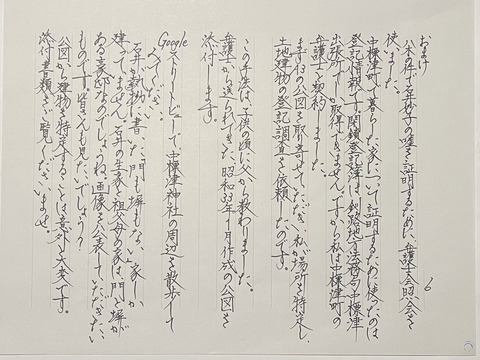 おまけ
八木の件で石井紗子の嘘を証明するために、弁護士会照会を
使いました。
中標津町で暮らした家について証明するために使たのは
登記情報です。閉鎖登記簿は、釧路地方法務局中標津
出張所でしか取得できません。ですから私は中標津町の
弁護士と契約しました。
まず43の公図を取り寄せていただき、私が場所を特定し、
土地建物の登記調査を依頼したのです。
この手法は、子供の頃に父から教わりました。
弁護士から送られてきた、昭和33年1月作成の公図を
添付します。
Googleストリートビューで、中標津神社の周辺を散歩して
みてください。
石井が執拗に書いた、「門も塀もない」家しか
建ってません。石井の生家と祖父母の家は、門と塀が
ある豪邸なのでしょうね。画像を公表していただきたい
ものです。皆さんも見たいでしょう?
公図から建物を特定することは意外と大変です。
添付書類をご覧くださいませ。
6